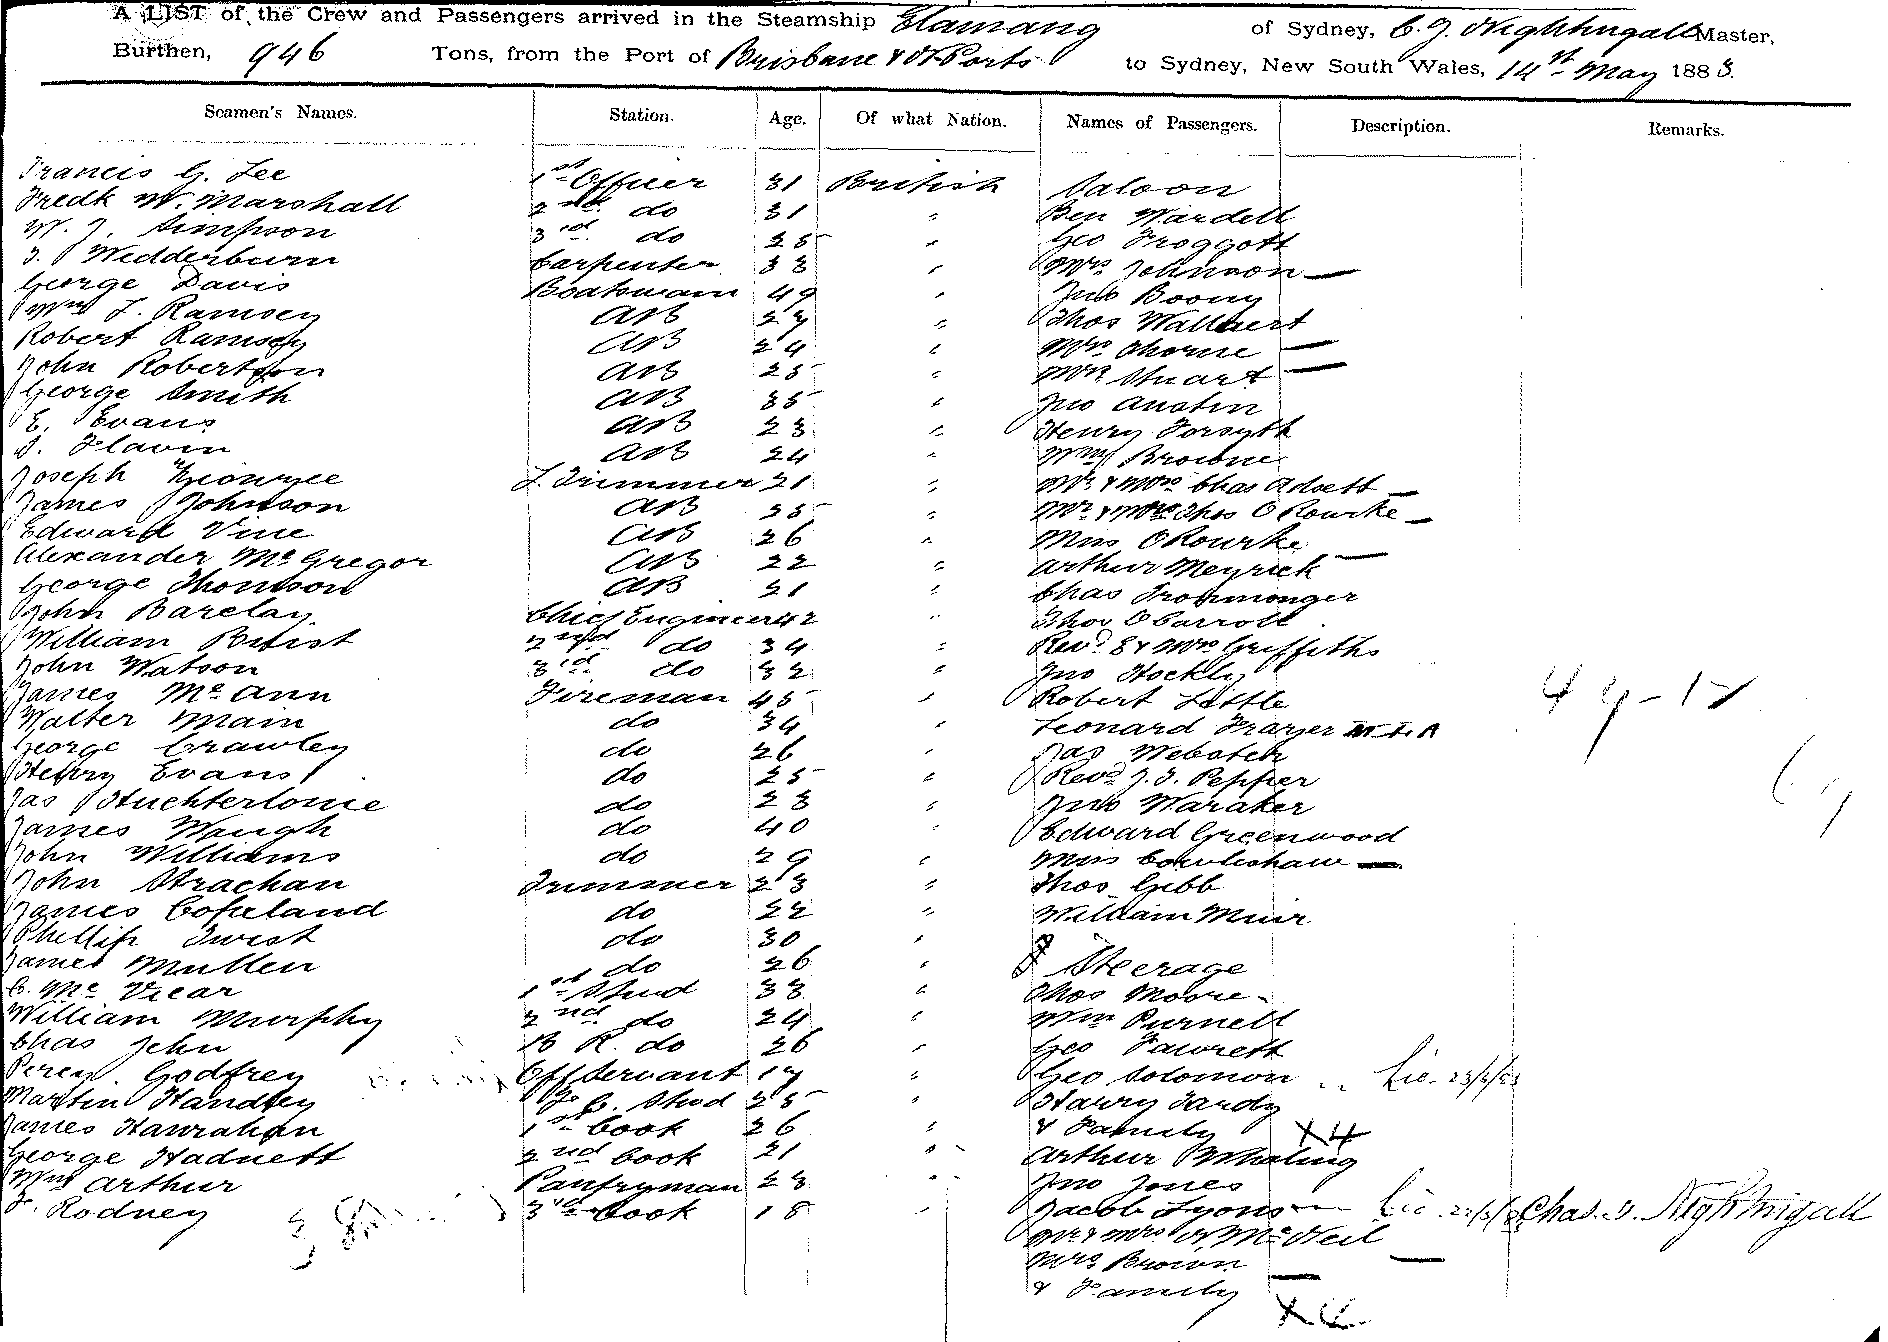 A LIST of the Crew and Passengers arrived in the Steamship Elamang of Sydney, C. J. Nightingall Master,
Burthen, 946 Tons, from the Port of Brisbane & N Ports to Sydney, New South Wales, 14th May 1883.
Seamen's Names. Station. Age. Of what Nation. Names of Passengers. Description. Remarks.
Francis G. Lee 1st Officer 31 British Saloon
Fredk W. Marshall 2nd do 31 " Ben Wardell
W. J. Simpson 3rd do 25 " Geo Froggott
J. Wedderburn Carpenter 33 " Mrs Johnson —
George Davis Boatswain 49 " Jno Boony
Wm J. Ramsey AB 27 " Thos
Robert Ramsey AB 24 " Mrs Thorne —
John Robertson AB 25 " Mrs Stuart —
George Smith AB 35 " Jno Austin
E. Evans AB 23 " Henry Forsyth
J. Flavin AB 24 " Wm Browne
Joseph L. Trimmer 21 " Mr & Mrs Chas Adsett —
James Johnson AB 35 " Mr & Mrs Thos O Rourke —
Edward Vine AB 26 " Miss O Rourke —
Alexander McGregor AB 22 " Arthur Meyrick
George Thomson AB 21 " Chas Ironmonger
John Barclay Chief Engineer 42 " Thos O Carroll
William 2nd do 34 " Revd E & Mrs Griffiths
John Watson 3rd do 32 " Jno Hockly
James McAnn Fireman 45 " Robert Little
Walter Main do 34 " Leonard Frazer
George Crawley do 26 " Jas Webster
Henry Evans do 25 " Revd J. J. Pepper
Jas Huchterlonie do 23 " Jno Waraker
James Waugh do 40 " Edward Greenwood
John Williams do 29 " Miss Cowlishaw —
John Strachan Trimmer 23 " Thos Gibb
James Copeland do 22 " William Muir
Phillip Twist do 30 "
James Mullen do 26 " Steerage
C. McVicar 1st Stud 33 " Thos Moore
William Murphy 2nd do 24 " Wm Purnell
Chas Jehn B R. do 26 " Geo Fawcett
Percy Godfrey Off Servant 17 " Geo Solomon Lic. 23/5/83
Martin Handley F. C. Stud 25 " Harry Tardy
James Hanrahan 1st Cook 26 " & Family X4
George Hadnett 2nd Cook 21 " Arthur Whaling
Wm Arthur Pantryman 23 " Jno Jones
F. Rodney 3rd Cook 18 " Jacob Lyons Lic. Chas. J. Nightingall
Mr & Mrs McNeil —
Mrs Brown —
& Family